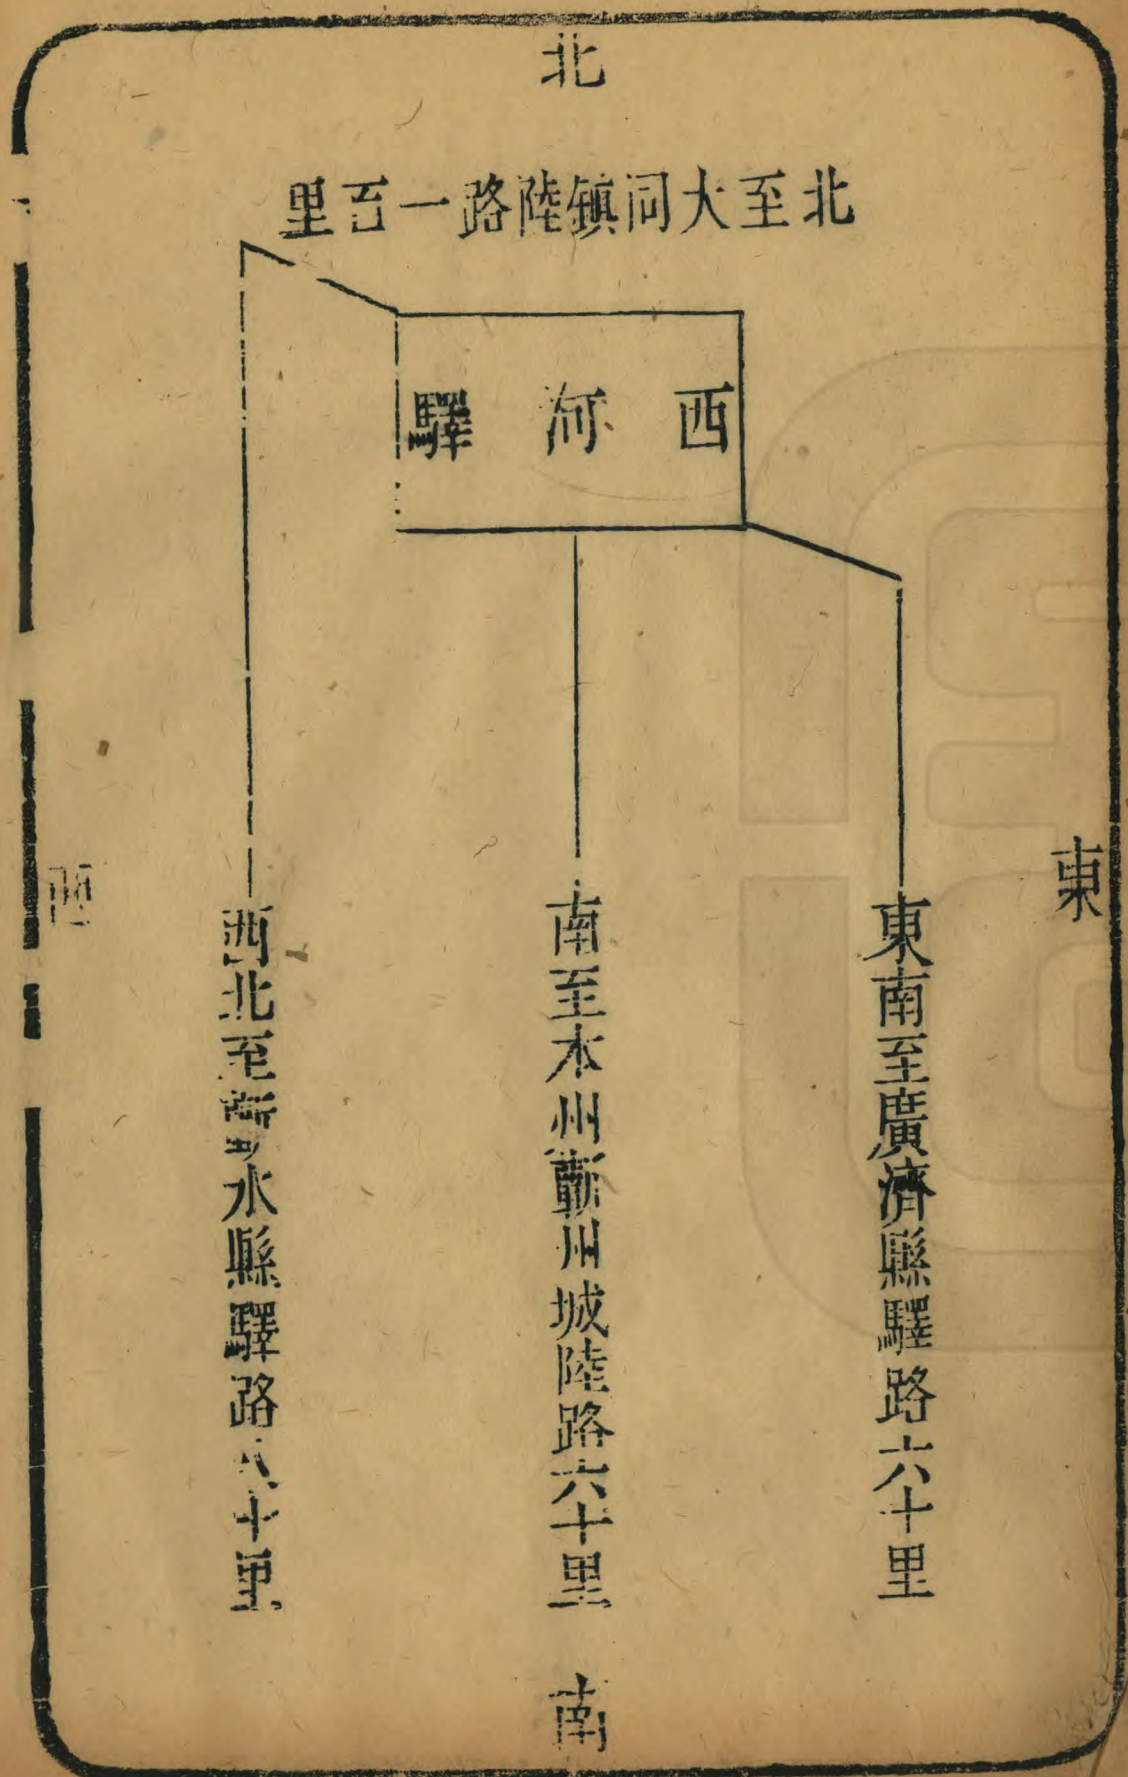 北
北至大同鎮陸路一百里
西河驛
東
東南至廣濟縣驛路六十里
南至本州蘄州城陸路六十里
西北至蘄水縣驛路 十里
西
南